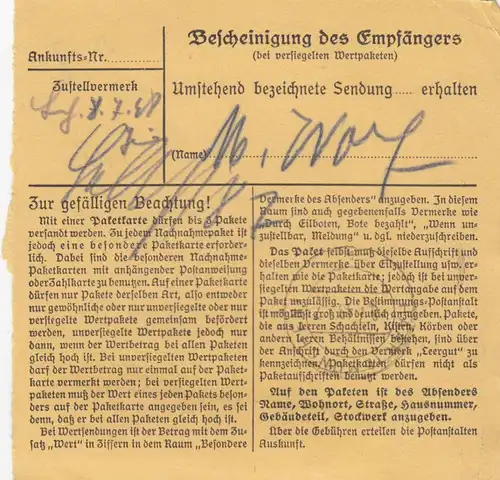 Bescheinigung des Empfängers
(bei versiegelten Wertpaketen)
Ankunfts-Nr.
Zustellvermerk
8.7.38
Umstehend bezeichnete Sendung..... erhalten
(Name)
Zur gefälligen Beachtung!
Mit einer Paketkarte dürfen bis 3 Pakete
versandt werden. Zu jedem Nachnahmepaket ist
jedoch eine besondere Paketkarte erforder-
lich. Dabei sind die besonderen Nachnahme-
Paketkarten mit anhängender Postanweisung
oder Zahlkarte zu benutzen. Auf einer Paketkarte
dürfen nur Pakete derselben Art, also entweder
nur gewöhnliche oder nur unversiegelte oder nur
versiegelte Wertpakete gemeinsam befördert
werden, unversiegelte Wertpakete jedoch nur
dann, wenn der Wertbetrag bei allen Paketen
gleich hoch ist. Bei unversiegelten Wertpaketen
darf der Wertbetrag nur einmal auf der Paket-
karte vermerkt werden; bei versiegelten Wert-
paketen muß der Wert eines jeden Pakets beson-
ders auf der Paketkarte angegeben sein, es sei
denn, daß er bei allen Paketen gleich hoch ist.
Bei Wertsendungen ist der Betrag mit dem Zu-
satz „Wert" in Ziffern in dem Raum „Besondere
Vermerke des Absenders" anzugeben. In diesem
Raum sind auch gegebenenfalls Vermerke wie
„Durch Eilboten, Bote bezahlt", „Wenn un-
zustellbar, Meldung" u. dgl. niederzuschreiben.
Das Paket selbst muß dieselbe Aufschrift und
dieselben Vermerke über Eilzustellung usw. er-
halten wie die Paketkarte; jedoch ist bei unver-
siegelten Wertpaketen die Wertangabe auf dem
Paket unzulässig. Die Bestimmungs-Postanstalt
ist möglichst groß und deutlich anzugeben. Pakete,
die aus leeren Schachteln, Kisten, Körben oder
anderen leeren Behältnissen bestehen, sind über
der Anschrift durch den Vermerk „Leergut" zu
kennzeichnen. Paketkarten dürfen nicht als
Paketaufschriften benutzt werden.
Auf den Paketen ist des Absenders
Name, Wohnort, Straße, Hausnummer,
Gebäudeteil, Stockwerk anzugeben.
Über die Gebühren erteilen die Postanstalten
Auskunft.